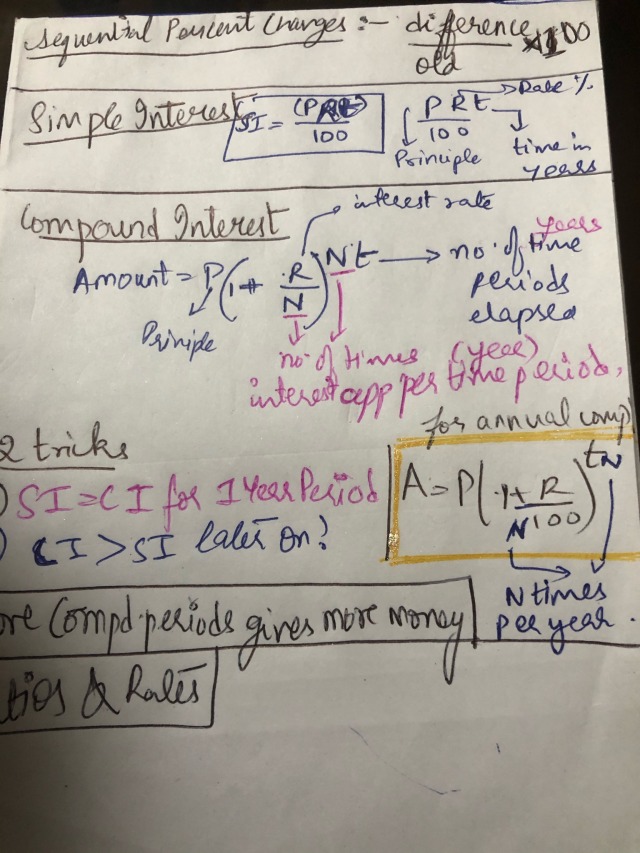 Sequential Percent Changes :- difference/old ×100
Simple Interest SI = (PRt)/100 PRt/100 → Rate %
Principle time in years
Compound Interest → interest rate
Amount = P(1+ R/N)^Nt → no. of time years
periods
elapsed
Priniple
no. of times (year)
interest app per time period.
for annual comp
2 tricks
) SI = CI for 1 Year Period A = P(1+ R/N100)^tN
) CI > SI later on?
N times
per year.
ore Compd. periods gives more money
tios & Rates